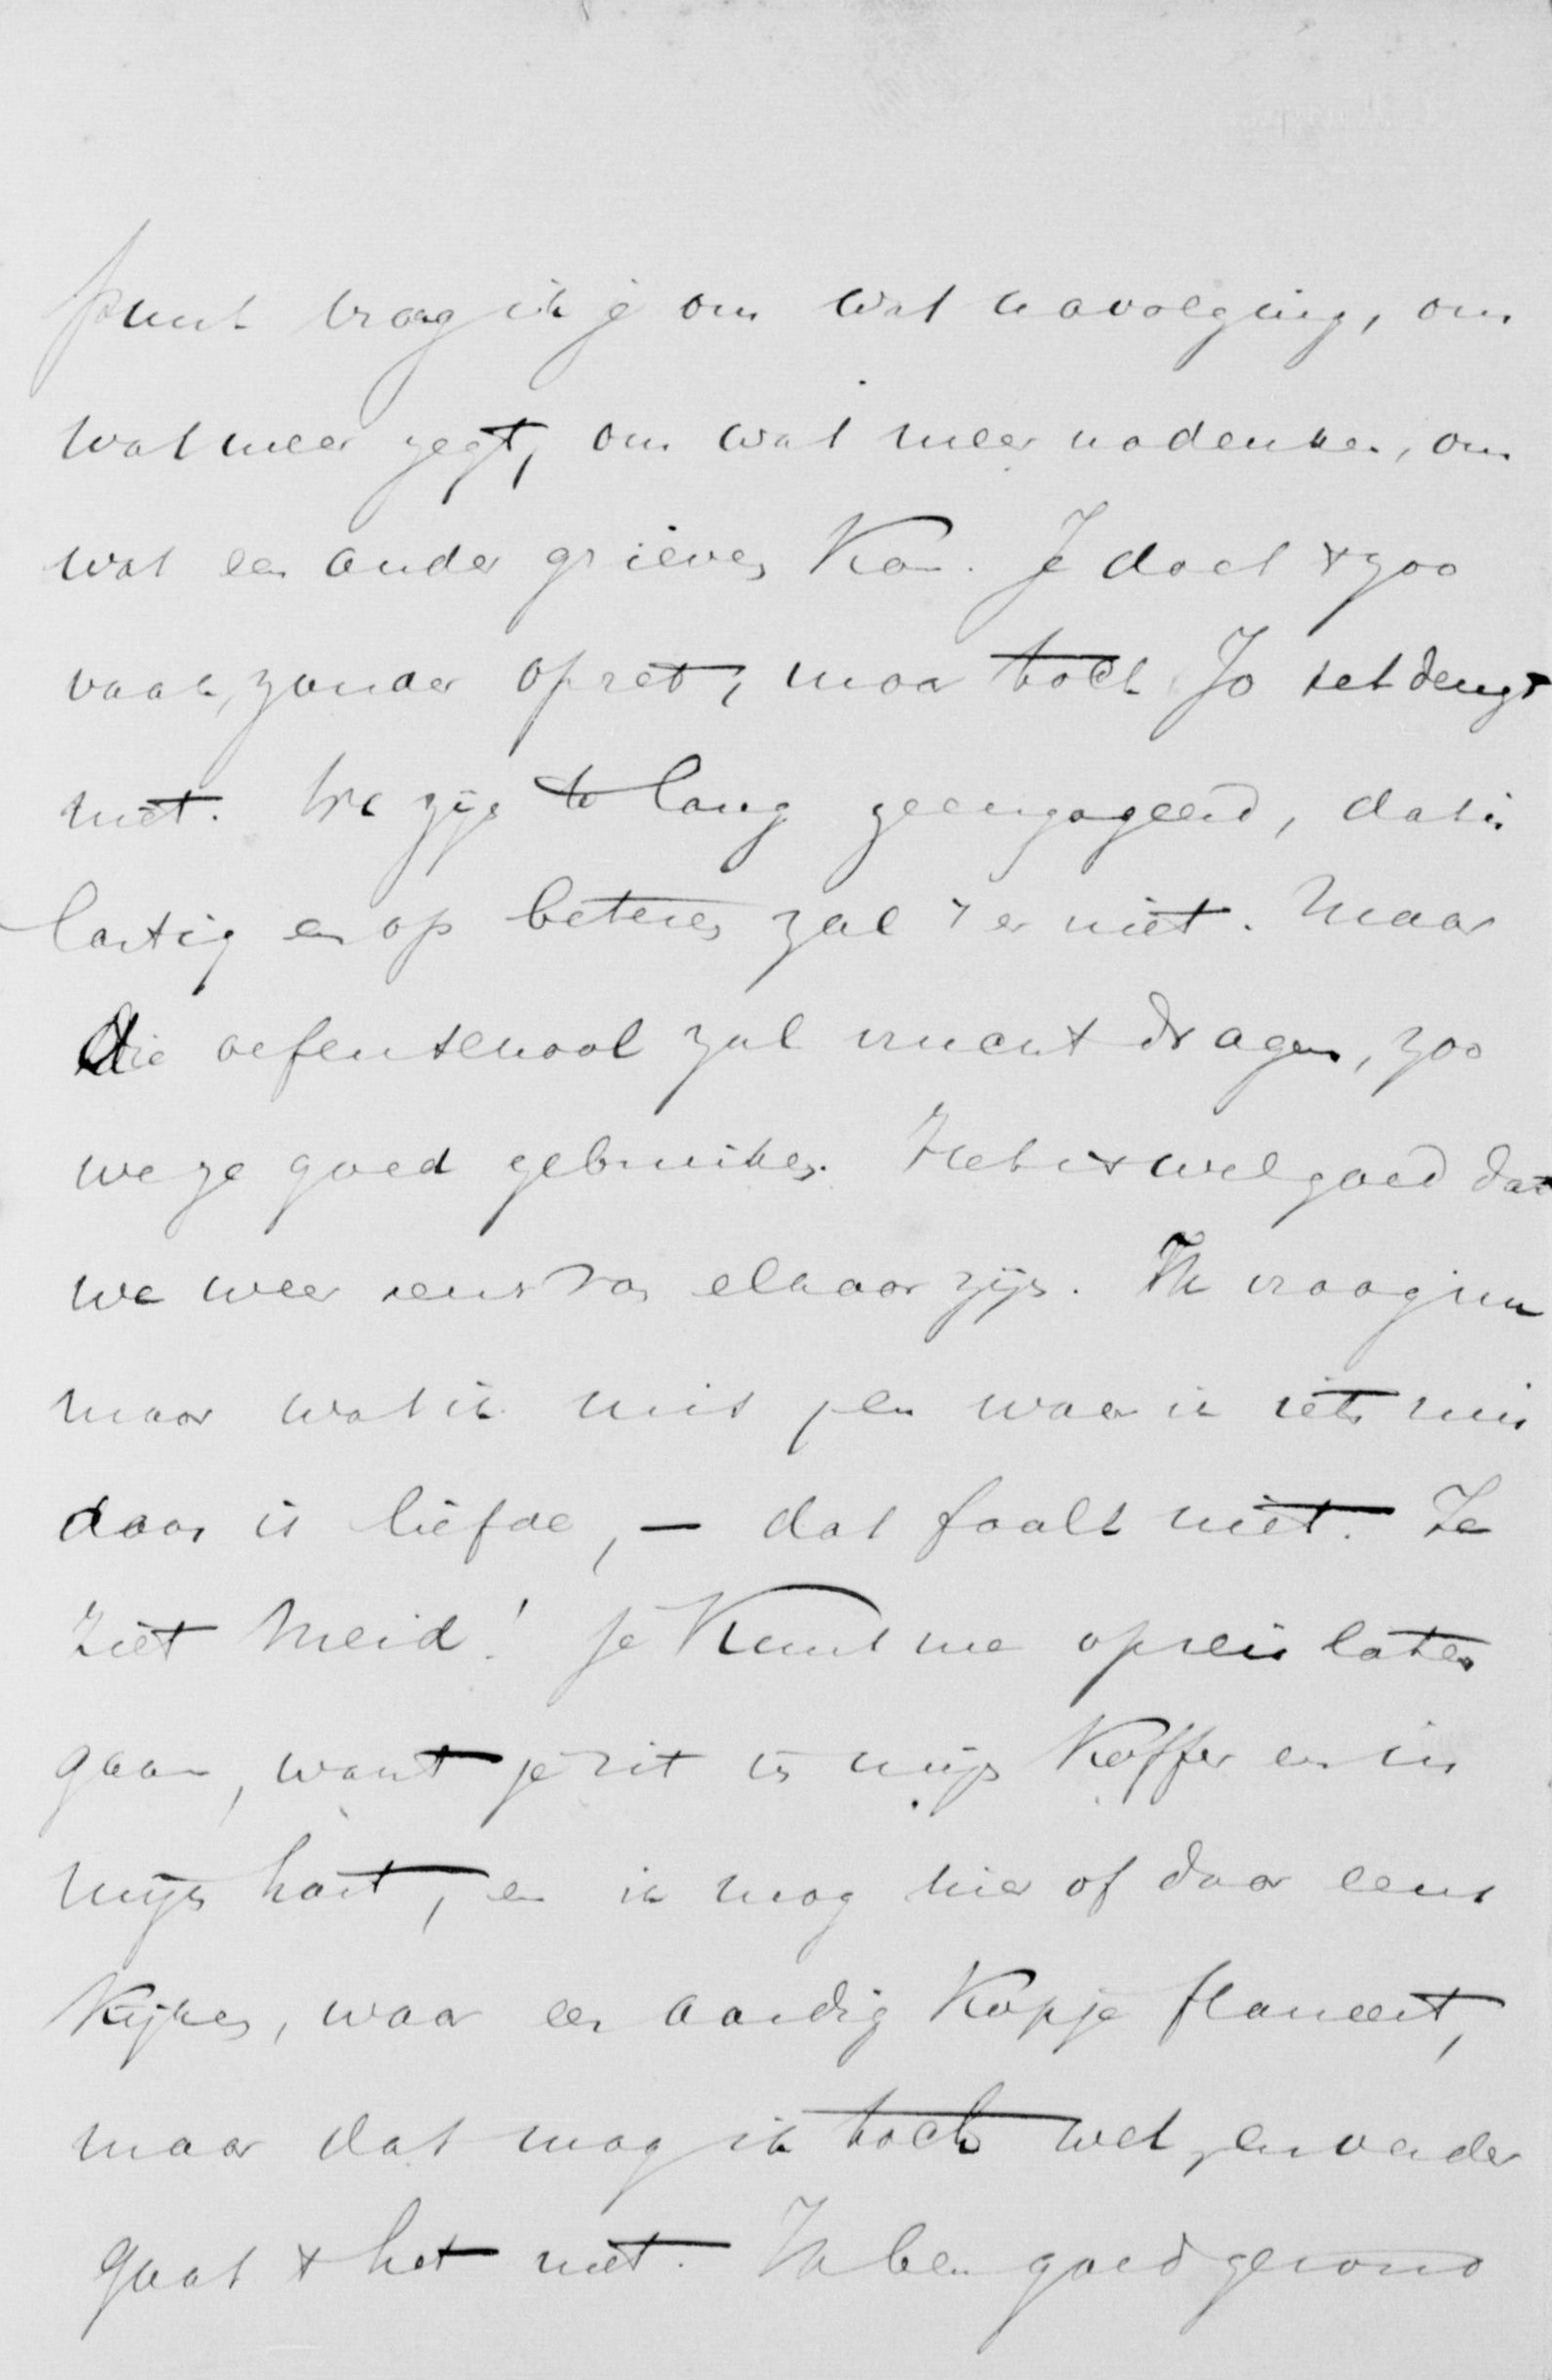 punt vraag ik je om wat navolging, om
wat meer zegt, om wat meer nadenken, om
wat een ander grieven kan. Je doet 't zoo
vaak, zonder opzet, maar toch Jo het deugt
niet. We zijn te lang geengageerd, dat is
lastig en op beteren zal 't er niet. Maar
die oefenschool zal vrucht dragen, zoo
we ze goed gebruiken. Het is wel goed dat
we weer eens van elkaar zijn. Ik vraag nu
maar wat ik mis, en waar ik iets mis
daar is liefde, — dat faalt niet. Je
ziet meid! Je kunt me op reis laten
gaan, want je zit in mijn koffer en in
mijn hart, en ik mag hier of daar eens
kijken, waar een aardig kopje flaneert,
maar dat mag ik toch wel, en verder
gaat 't het niet. Ik ben goed gezond